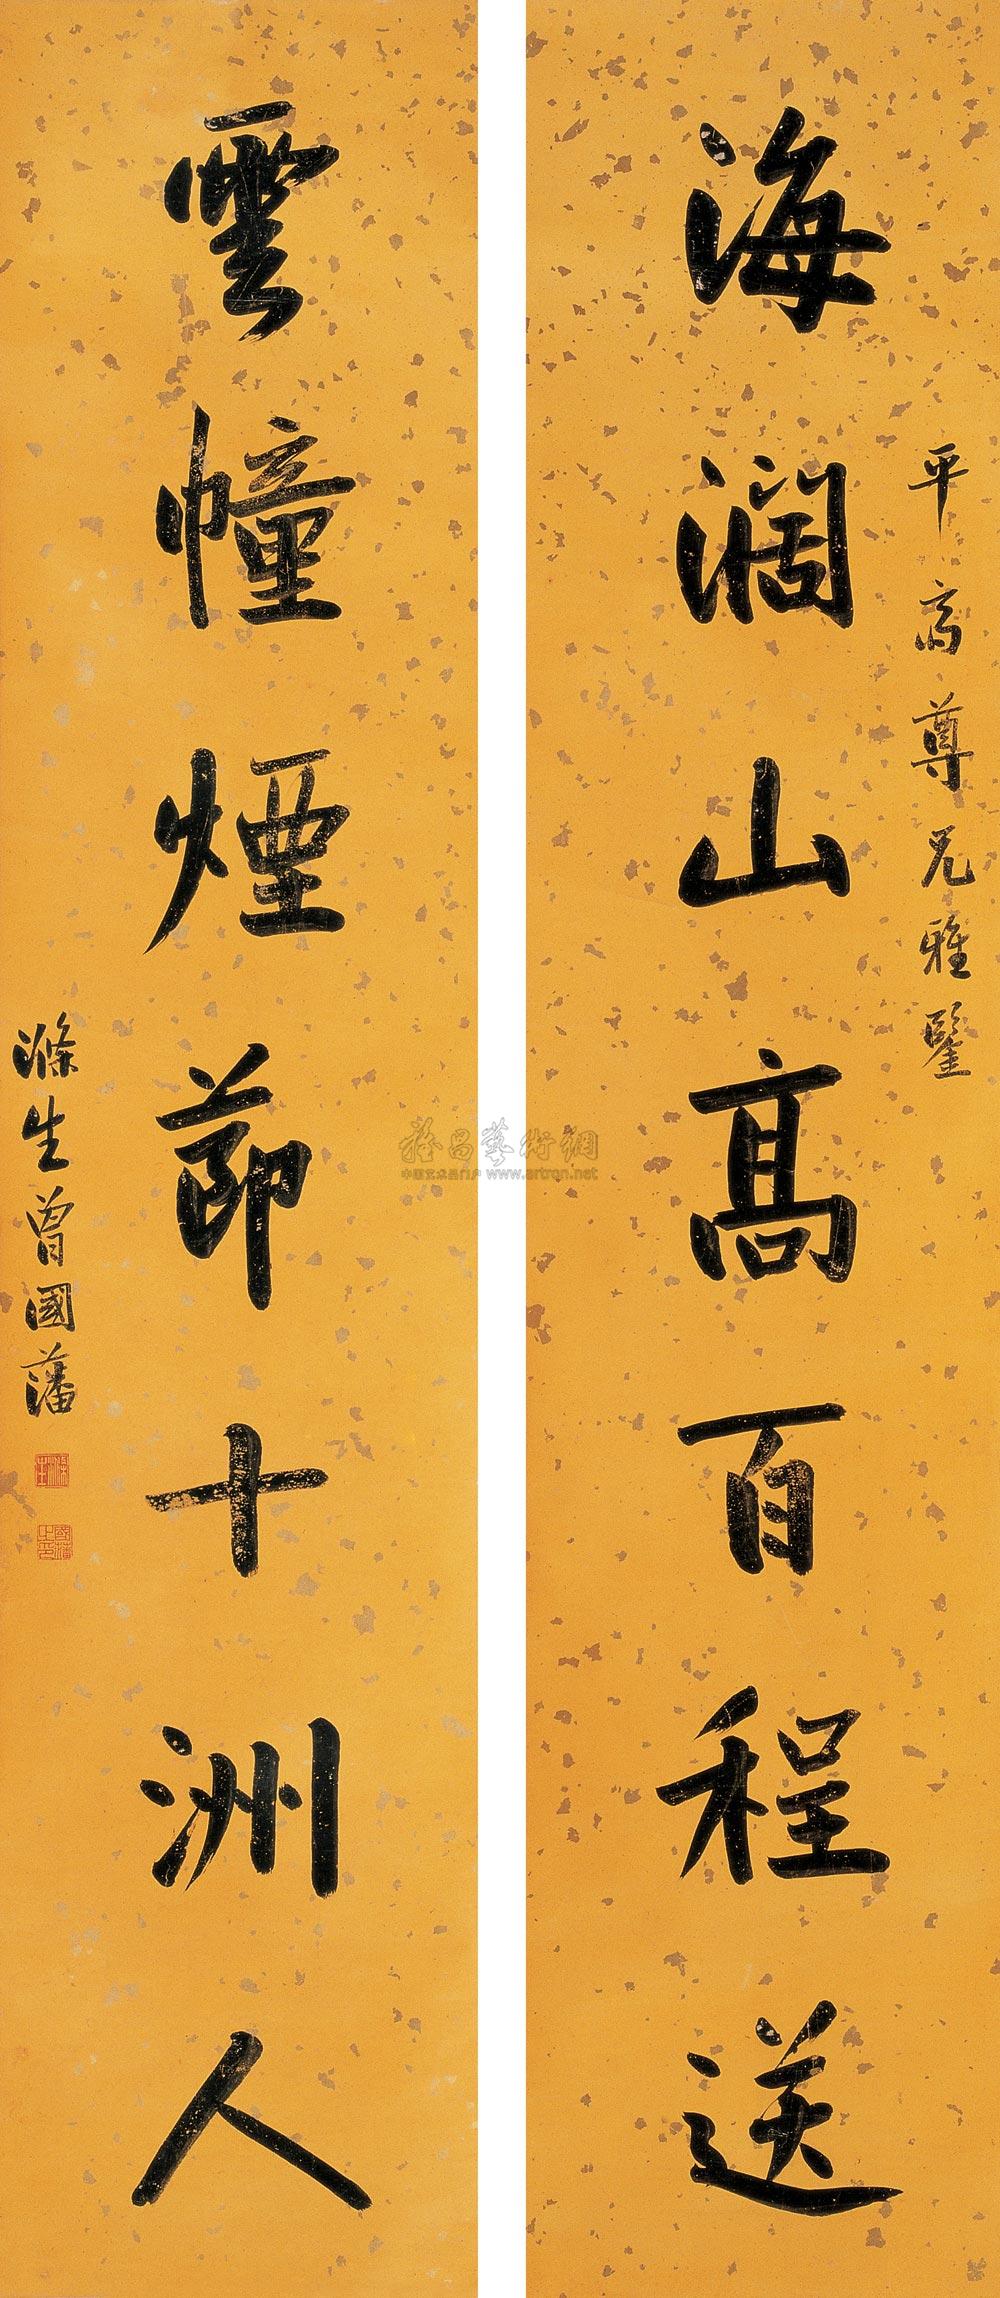 平高尊兄雅鑒
海濶山高百程送
雲幢煙節十洲人
滌生曾國藩
國藩之印
雅昌藝術網
www.artron.net